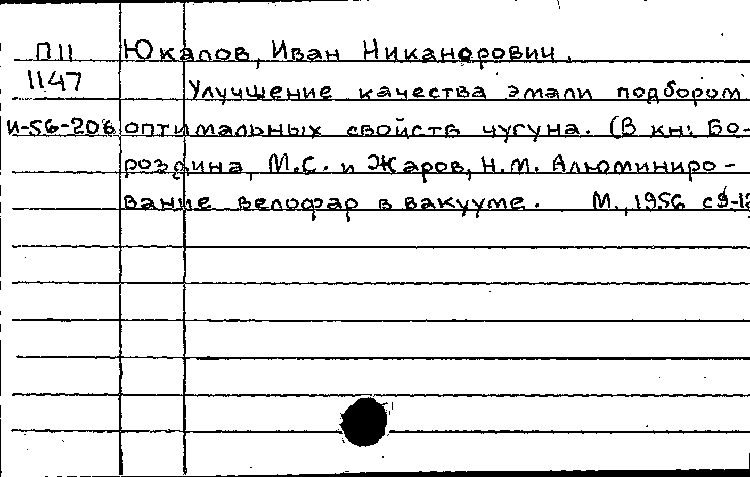 П11 Юкалов, Иван Никанорович.
1147 Улучшение качества эмали подбором
И-56-206 оптимальных свойств чугуна. (В кн: Бо-
роздина, М.С. и Жаров, Н.М. Алюминиро-
вание велофар в вакууме. М., 1956 с9-12